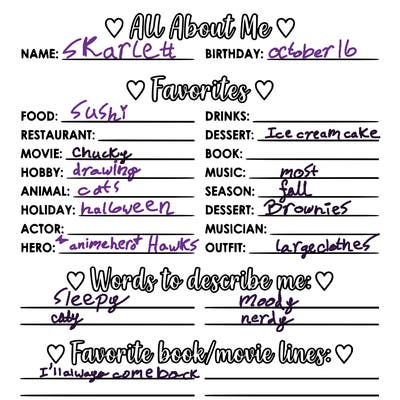 ♡ All About Me ♡
NAME: Skarlett BIRTHDAY: october 16
♡ Favorites ♡
FOOD: Sushi DRINKS:
RESTAURANT: DESSERT: Ice cream cake
MOVIE: Chucky BOOK:
HOBBY: drawing MUSIC: most
ANIMAL: cats SEASON: fall
HOLIDAY: halloween DESSERT: Brownies
ACTOR: MUSICIAN:
HERO: *anime hero* Hawks OUTFIT: large clothes
♡ Words to describe me: ♡
Sleepy moody
catty nerdy
♡ Favorite book/movie lines: ♡
I'll always come back